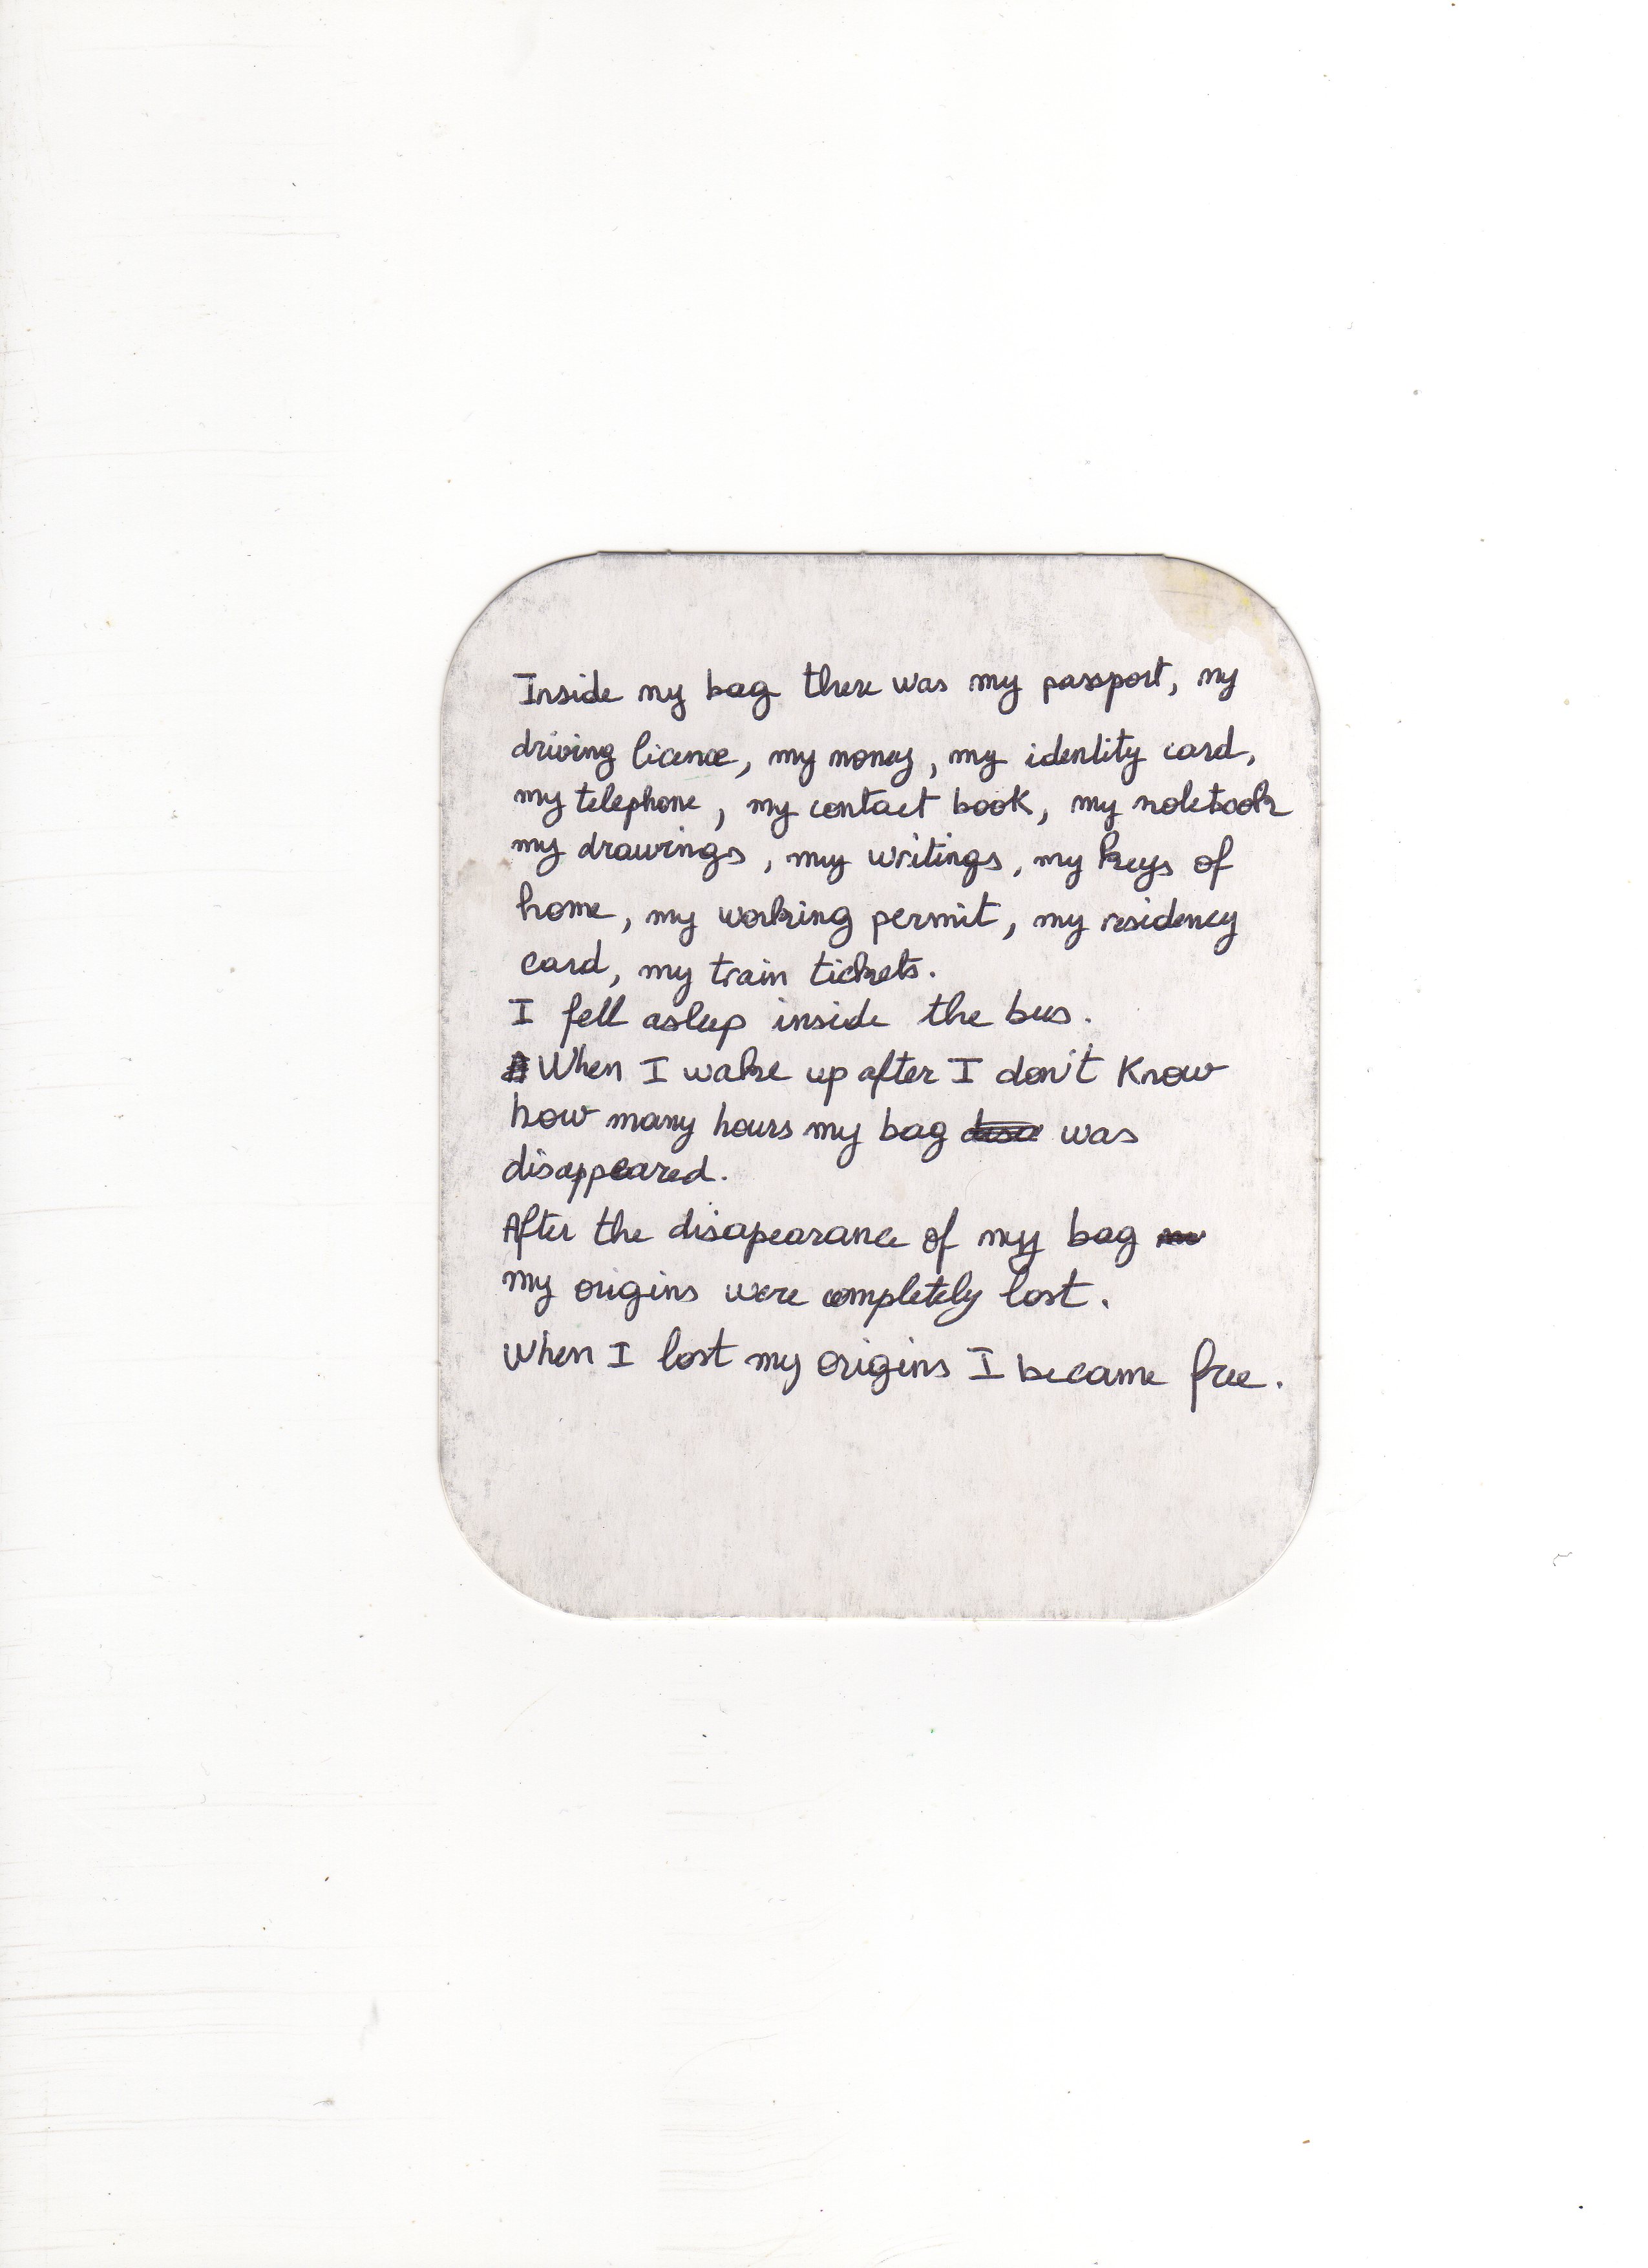 Inside my bag there was my passport, my
driving licence, my money, my identity card,
my telephone, my contact book, my notebook
my drawings, my writings, my keys of
home, my working permit, my residency
card, my train tickets.
I fell asleep inside the bus.
When I wake up after I don't know
how many hours my bag was
disappeared.
After the disapearance of my bag
my origins were completely lost.
When I lost my origins I became free.